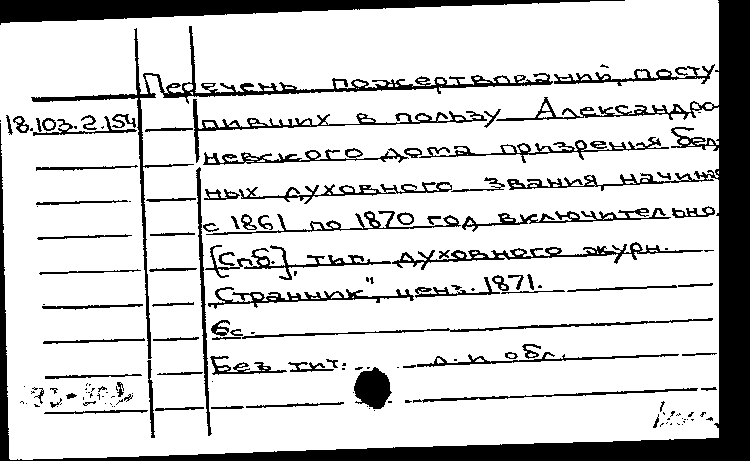 Перечень пожертвований, посту-
18.103.2.154
пивших в пользу Александро-
невского дома призрения бед-
ных духовного звания, начиная
с 1861 по 1870 год включительно.
[Спб.], тип. духовного журн.
"Странник", ценз. 1871.
6с.
Без тит. л. и обл.